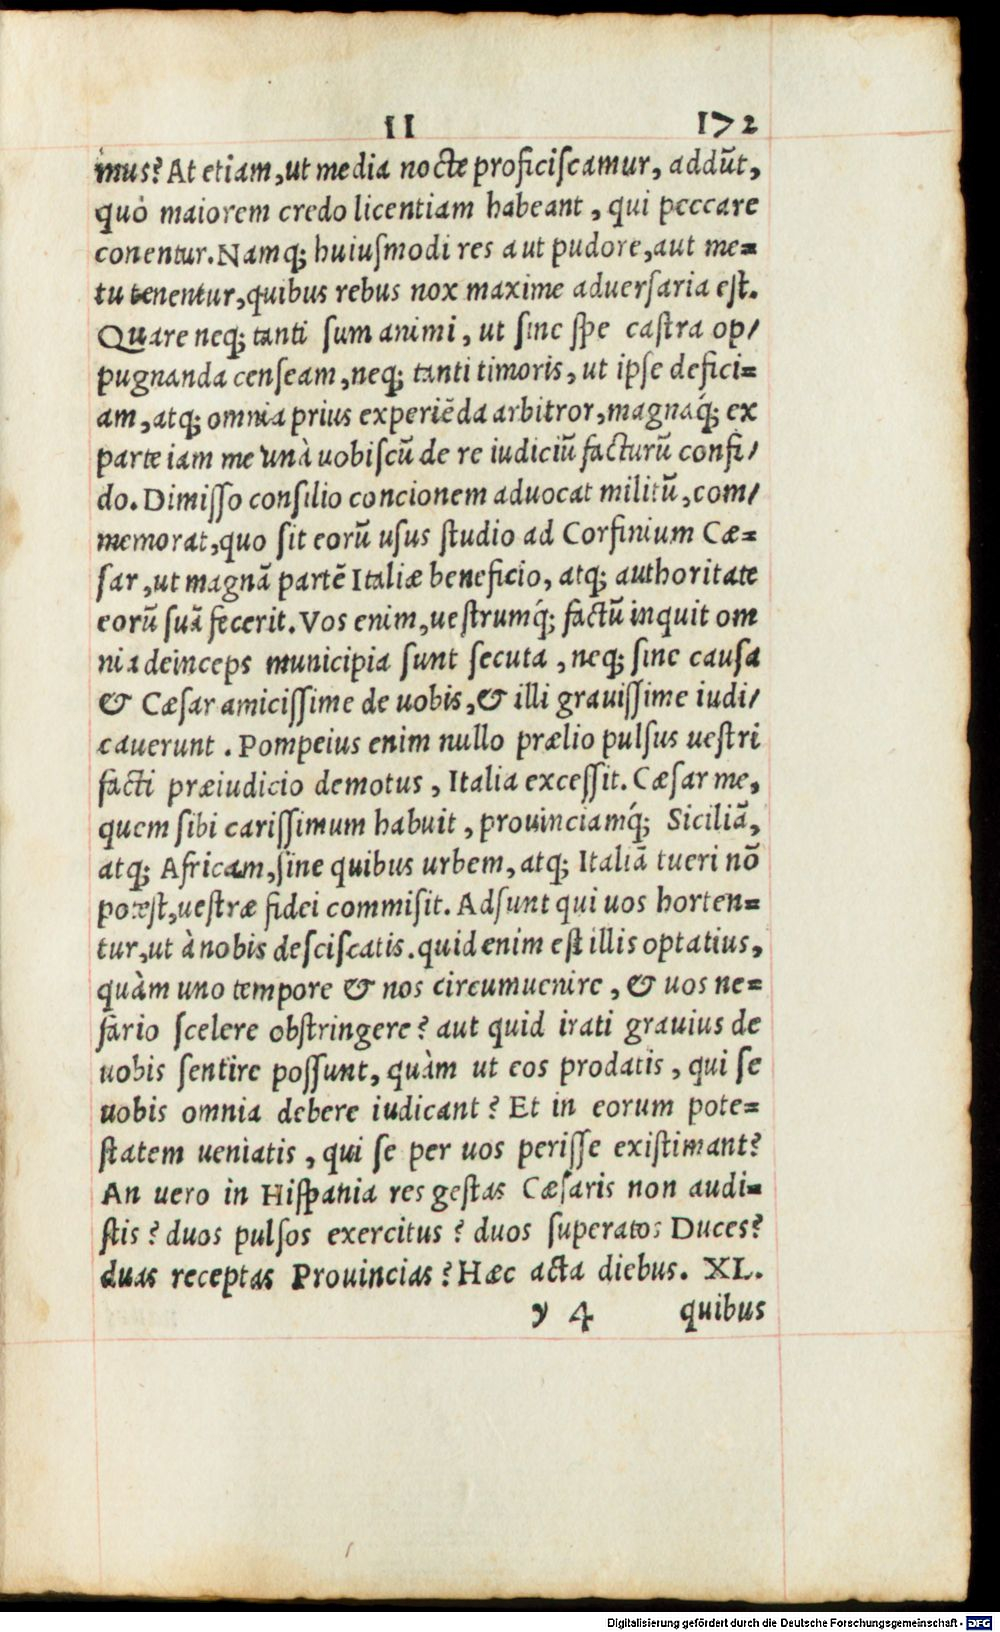 II 172
imus? At etiam, ut media nocte proficiſcamur, addūt,
quò maiorem credo licentiam habeant, qui peccare
conentur. Namq; huiuſmodi res aut pudore, aut me=
tu tenentur, quibus rebus nox maxime aduerſaria eſt.
Quare neq; tanti ſum animi, ut ſine ſpe caſtra op/
pugnanda cenſeam, neq; tanti timoris, ut ipſe defici=
am, atq; omnia prius experiēda arbitror, magnaq́; ex
parte iam me unà uobiſcū de re iudiciū facturū confi/
do. Dimiſſo conſilio concionem aduocat militū, com/
memorat, quo ſit eorū uſus ſtudio ad Corfinium Cæ=
ſar, ut magnā partē Italiæ beneficio, atq; authoritate
eorū ſuā fecerit. Vos enim, ueſtrumq́; factū inquit om
nia deinceps municipia ſunt ſecuta, neq; ſine cauſa
& Cæſar amiciſſime de uobis, & illi grauiſſime iudi/
cauerunt. Pompeius enim nullo prælio pulſus ueſtri
facti præiudicio demotus, Italia exceſſit. Cæſar me,
quem ſibi cariſſimum habuit, prouinciamq́; Siciliā,
atq; Africam, ſine quibus urbem, atq; Italiā tueri nō
poteſt, ueſtræ fidei commiſit. Adſunt qui uos horten=
tur, ut à nobis deſciſcatis. quid enim eſt illis optatius,
quàm uno tempore & nos circumuenire, & uos ne=
fario ſcelere obſtringere? aut quid irati grauius de
uobis ſentire poſſunt, quàm ut eos prodatis, qui ſe
uobis omnia debere iudicant? Et in eorum pote=
ſtatem ueniatis, qui ſe per uos periſſe exiſtimant?
An uero in Hiſpania res geſtas Cæſaris non audi=
ſtis? duos pulſos exercitus? duos ſuperatos Duces?
duas receptas Prouincias? Hæc acta diebus. XL.
y 4 quibus
Digitalisierung gefördert durch die Deutsche Forschungsgemeinschaft - DFG